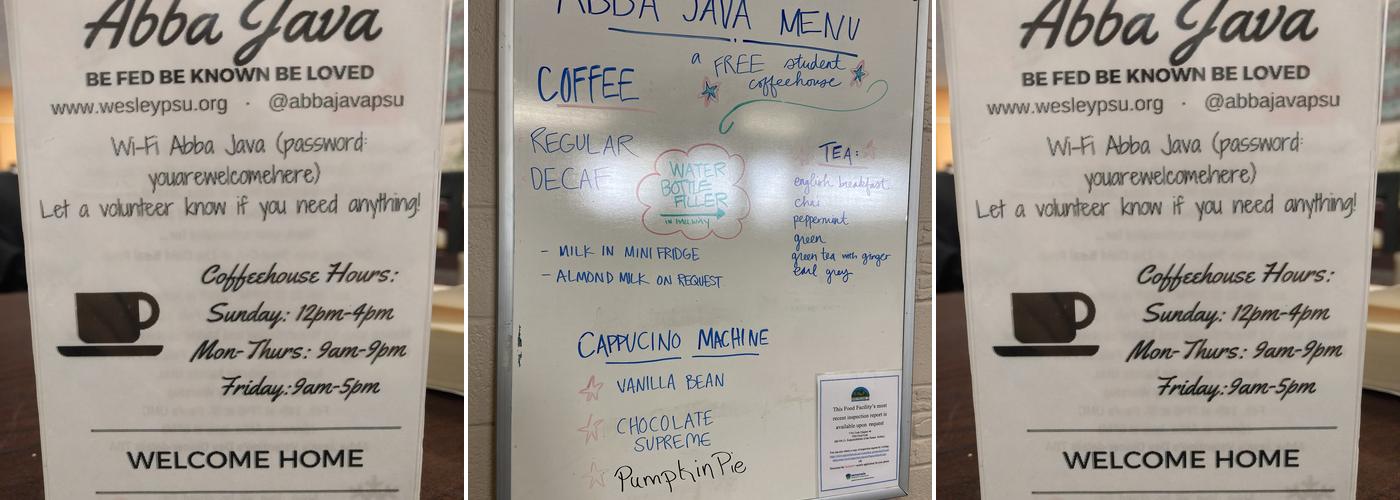 Abba Java
BE FED BE KNOWN BE LOVED
www.wesleypsu.org · @abbajavapsu
Wi-Fi Abba Java (password:
youarewelcomehere)
Let a volunteer know if you need anything!
Coffeehouse Hours:
Sunday: 12pm-4pm
Mon-Thurs: 9am-9pm
Friday:9am-5pm
WELCOME HOME
ABBA JAVA MENU
a FREE student
coffeehouse
COFFEE
REGULAR
DECAF
WATER
BOTTLE
FILLER
IN HALLWAY
TEA:
english breakfast
chai
peppermint
green
green tea with ginger
earl grey
- MILK IN MINI FRIDGE
- ALMOND MILK ON REQUEST
CAPPUCINO MACHINE
VANILLA BEAN
CHOCOLATE
SUPREME
Pumpkin Pie
This Food Facility's most
recent inspection report is
available upon request
Abba Java
BE FED BE KNOWN BE LOVED
www.wesleypsu.org · @abbajavapsu
Wi-Fi Abba Java (password:
youarewelcomehere)
Let a volunteer know if you need anything!
Coffeehouse Hours:
Sunday: 12pm-4pm
Mon-Thurs: 9am-9pm
Friday:9am-5pm
WELCOME HOME